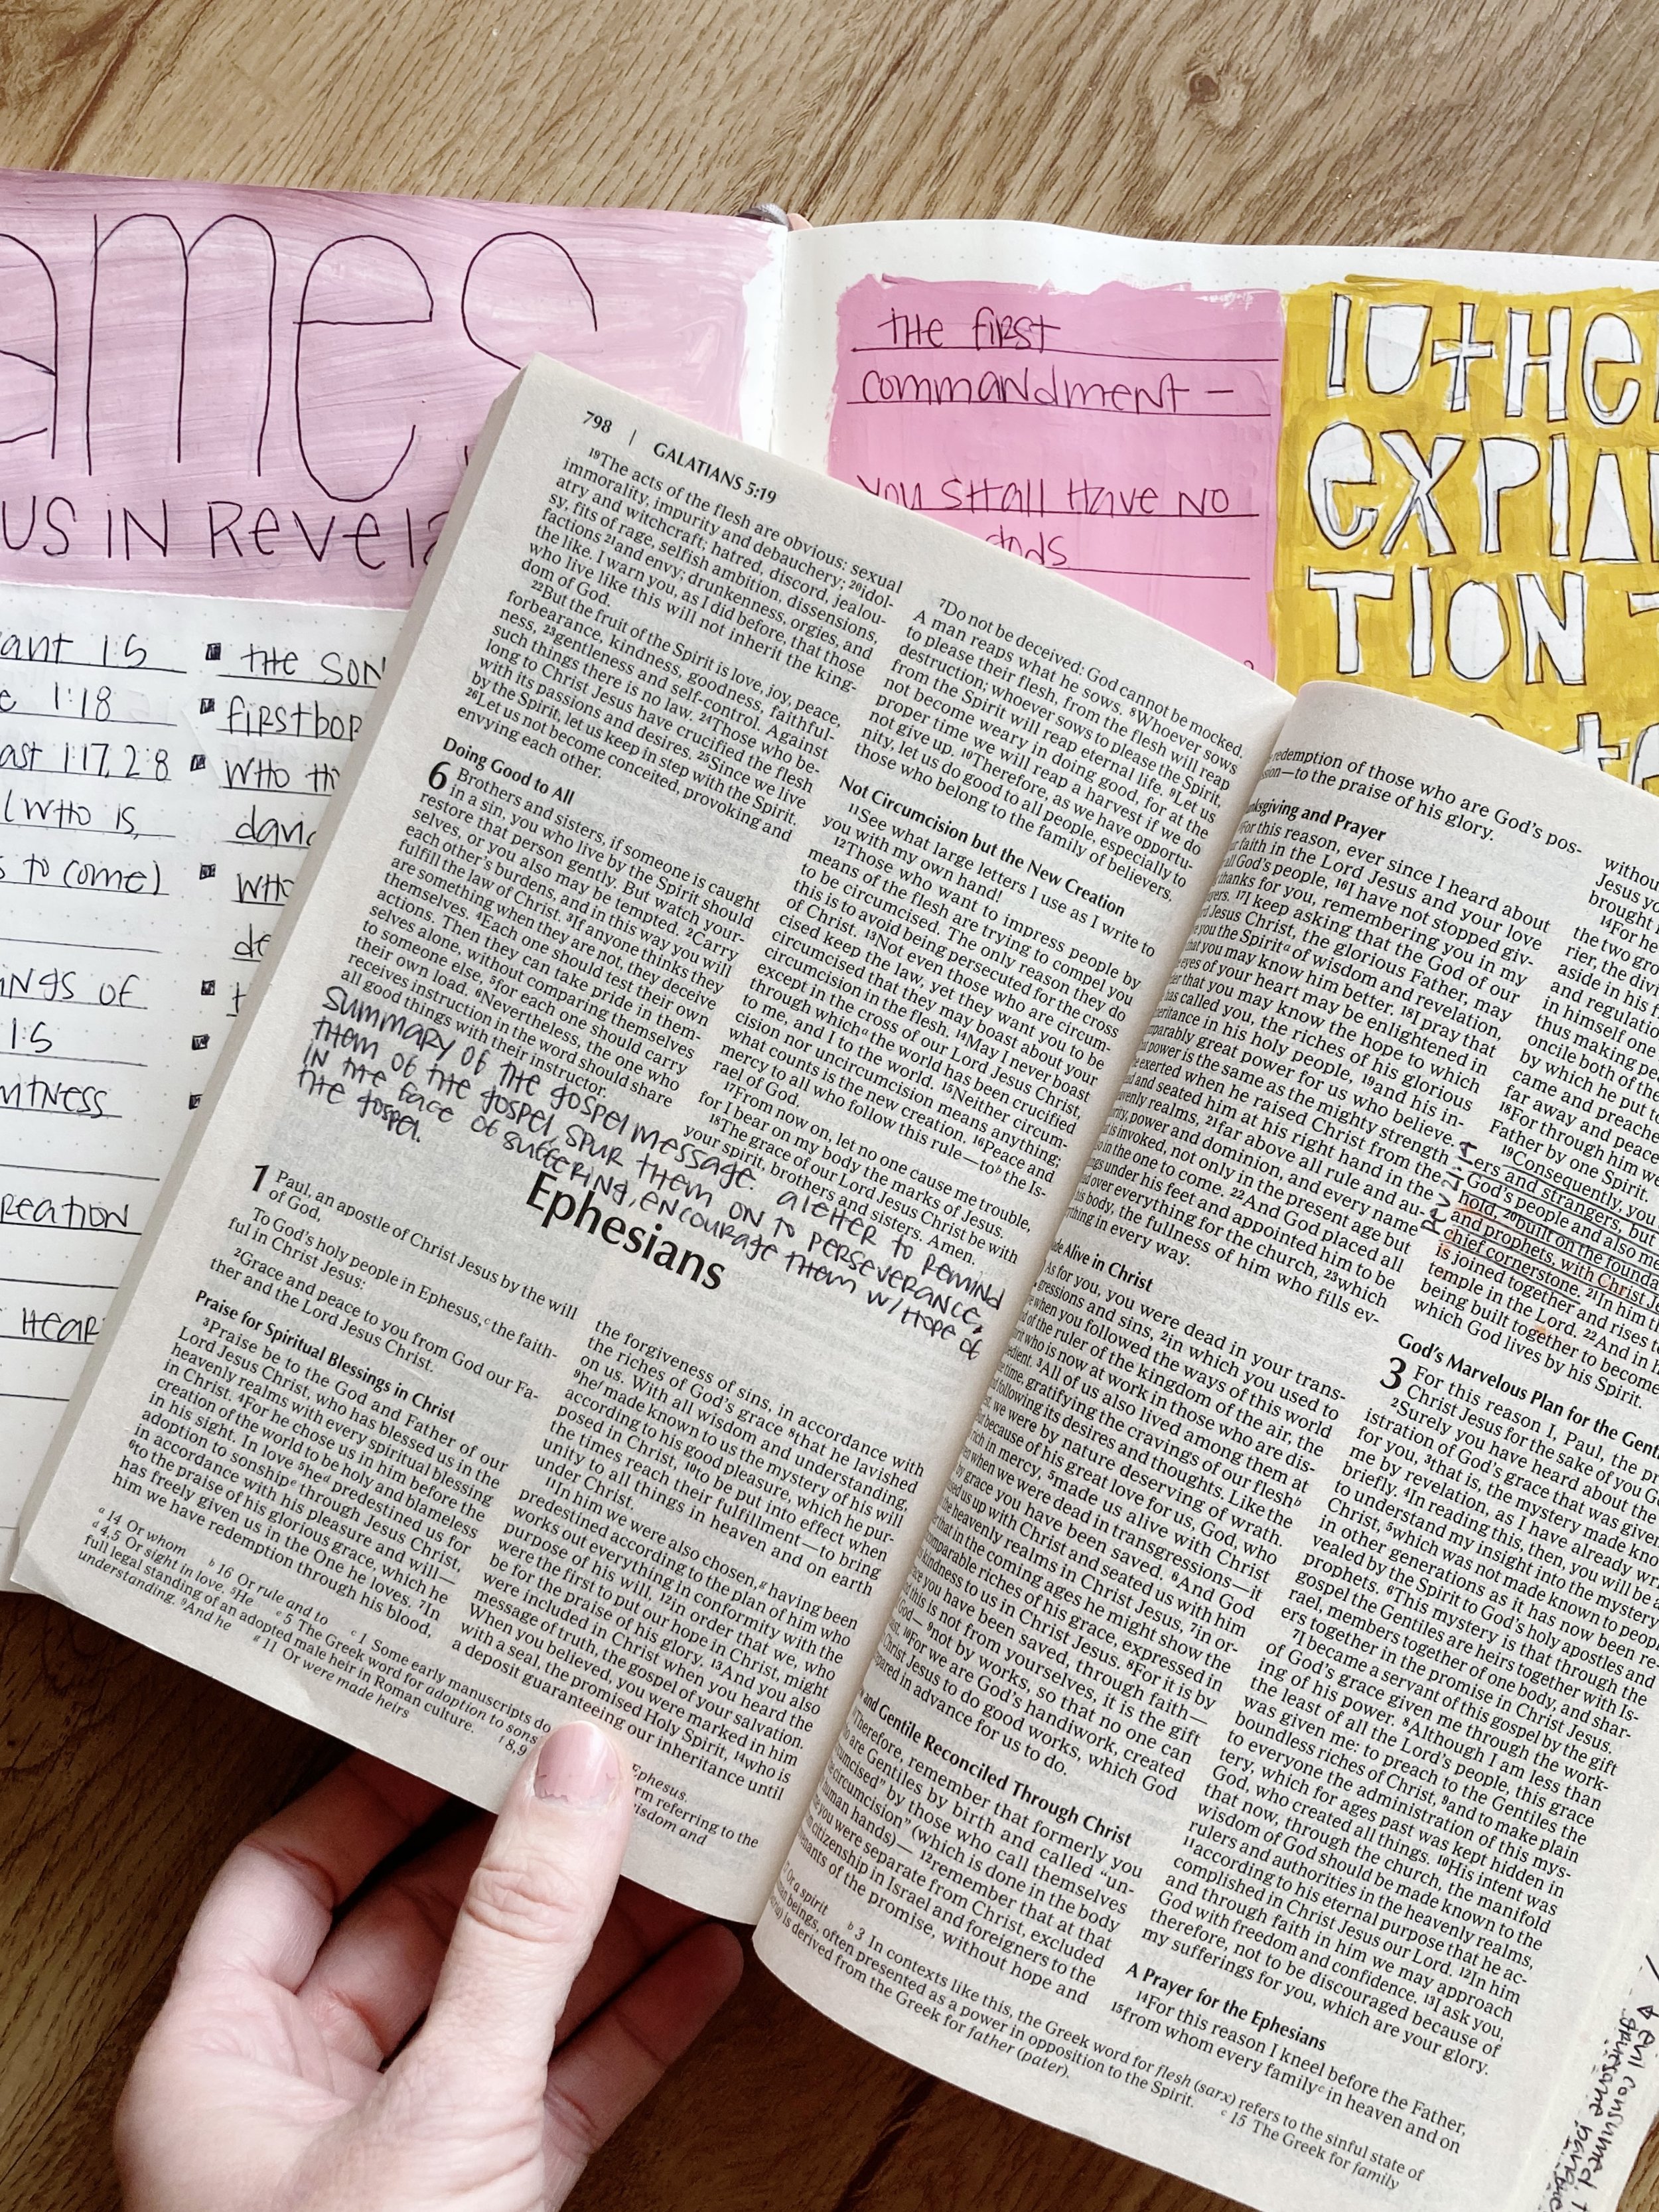 ames
us in Revela
the first
commandment –
you shall have no
gods
luthe
expla
tion –
ant 1:5
1:18
ast 1:17, 2:8
(who is,
s to come)
ngs of
1:5
witness
reation
Hear
the son
firstbor
who th
davi
who
de
798 | GALATIANS 5:19
19The acts of the flesh are obvious: sexual
immorality, impurity and debauchery; 20idol-
atry and witchcraft; hatred, discord, jealou-
sy, fits of rage, selfish ambition, dissensions,
factions 21and envy; drunkenness, orgies, and
the like. I warn you, as I did before, that those
who live like this will not inherit the king-
dom of God.
22But the fruit of the Spirit is love, joy, peace,
forbearance, kindness, goodness, faithful-
ness, 23gentleness and self-control. Against
such things there is no law. 24Those who be-
long to Christ Jesus have crucified the flesh
with its passions and desires. 25Since we live
by the Spirit, let us keep in step with the Spirit.
26Let us not become conceited, provoking and
envying each other.
Doing Good to All
6 Brothers and sisters, if someone is caught
in a sin, you who live by the Spirit should
restore that person gently. But watch your-
selves, or you also may be tempted. 2Carry
each other's burdens, and in this way you will
fulfill the law of Christ. 3If anyone thinks they
are something when they are not, they deceive
themselves. 4Each one should test their own
actions. Then they can take pride in them-
selves alone, without comparing themselves
to someone else, 5for each one should carry
their own load. 6Nevertheless, the one who
receives instruction in the word should share
all good things with their instructor.
7Do not be deceived: God cannot be mocked.
A man reaps what he sows. 8Whoever sows
to please their flesh, from the flesh will reap
destruction; whoever sows to please the Spirit,
from the Spirit will reap eternal life. 9Let us
not become weary in doing good, for at the
proper time we will reap a harvest if we do
not give up. 10Therefore, as we have opportu-
nity, let us do good to all people, especially to
those who belong to the family of believers.
Not Circumcision but the New Creation
11See what large letters I use as I write to
you with my own hand!
12Those who want to impress people by
means of the flesh are trying to compel you
to be circumcised. The only reason they do
this is to avoid being persecuted for the cross
of Christ. 13Not even those who are circum-
cised keep the law, yet they want you to be
circumcised that they may boast about your
circumcision in the flesh. 14May I never boast
except in the cross of our Lord Jesus Christ,
through which a the world has been crucified
to me, and I to the world. 15Neither circum-
cision nor uncircumcision means anything;
what counts is the new creation. 16Peace and
mercy to all who follow this rule—to b the Is-
rael of God.
17From now on, let no one cause me trouble,
for I bear on my body the marks of Jesus.
18The grace of our Lord Jesus Christ be with
your spirit, brothers and sisters. Amen.
Summary of the gospel message. a letter to remind
them of the gospel, spur them on to perseverance,
in the face of suffering, encourage them w/ hope of
the gospel.
Ephesians
1 Paul, an apostle of Christ Jesus by the will
of God,
To God's holy people in Ephesus, c the faith-
ful in Christ Jesus:
2Grace and peace to you from God our Fa-
ther and the Lord Jesus Christ.
Praise for Spiritual Blessings in Christ
3Praise be to the God and Father of our
Lord Jesus Christ, who has blessed us in the
heavenly realms with every spiritual blessing
in Christ. 4For he chose us in him before the
creation of the world to be holy and blameless
in his sight. In love 5he d predestined us for
adoption to sonship e through Jesus Christ,
in accordance with his pleasure and will—
6to the praise of his glorious grace, which he
has freely given us in the One he loves. 7In
him we have redemption through his blood,
the forgiveness of sins, in accordance with
the riches of God's grace 8that he lavished
on us. With all wisdom and understanding,
9he f made known to us the mystery of his will
according to his good pleasure, which he pur-
posed in Christ, 10to be put into effect when
the times reach their fulfillment—to bring
unity to all things in heaven and on earth
under Christ.
11In him we were also chosen, g having been
predestined according to the plan of him who
works out everything in conformity with the
purpose of his will, 12in order that we, who
were the first to put our hope in Christ, might
be for the praise of his glory. 13And you also
were included in Christ when you heard the
message of truth, the gospel of your salvation.
When you believed, you were marked in him
with a seal, the promised Holy Spirit, 14who is
a deposit guaranteeing our inheritance until
a 14 Or whom b 16 Or rule and to c 1 Some early manuscripts do
Ephesus.
d 4,5 Or sight in love. 5He e 5 The Greek word for adoption to sons
rm referring to the
full legal standing of an adopted male heir in Roman culture. f 8,9
wisdom and
understanding. 9And he g 11 Or were made heirs
redemption of those who are God's pos-
sion—to the praise of his glory.
nksgiving and Prayer
For this reason, ever since I heard about
faith in the Lord Jesus and your love
all God's people, 16I have not stopped giv-
thanks for you, remembering you in my
17I keep asking that the God of our
Jesus Christ, the glorious Father, may
you the Spirit of wisdom and revelation,
that you may know him better. 18I pray that
eyes of your heart may be enlightened in
er that you may know the hope to which
has called you, the riches of his glorious
eritance in his holy people, 19and his in-
mparably great power for us who believe.
power is the same as the mighty strength
exerted when he raised Christ from the
and seated him at his right hand in the
venly realms, 21far above all rule and au-
rity, power and dominion, and every name
is invoked, not only in the present age but
in the one to come. 22And God placed all
ngs under his feet and appointed him to be
over everything for the church, 23which
his body, the fullness of him who fills ev-
rthing in every way.
de Alive in Christ
As for you, you were dead in your trans-
gressions and sins, 2in which you used to
when you followed the ways of this world
of the ruler of the kingdom of the air, the
rit who is now at work in those who are dis-
edient. 3All of us also lived among them at
time, gratifying the cravings of our flesh b
following its desires and thoughts. Like the
we were by nature deserving of wrath.
because of his great love for us, God, who
rich in mercy, 5made us alive with Christ
when we were dead in transgressions—it
by grace you have been saved. 6And God
us up with Christ and seated us with him
heavenly realms in Christ Jesus, 7in or-
that in the coming ages he might show the
omparable riches of his grace, expressed in
kindness to us in Christ Jesus. 8For it is by
you have been saved, through faith—
this is not from yourselves, it is the gift
God— 9not by works, so that no one can
10For we are God's handiwork, created
Christ Jesus to do good works, which God
epared in advance for us to do.
and Gentile Reconciled Through Christ
Therefore, remember that formerly you
are Gentiles by birth and called "un-
cumcised" by those who call themselves
circumcision" (which is done in the body
human hands)— 12remember that at that
you were separate from Christ, excluded
citizenship in Israel and foreigners to the
enants of the promise, without hope and
withou
Jesus yo
brought
14For he
the two gro
rier, the divi
aside in his f
and regulatio
in himself one
thus making pe
oncile both of the
by which he put to
came and preache
far away and peace
18For through him we
Father by one Spirit.
19Consequently, you
ers and strangers, but
God's people and also me
hold, 20built on the founda
and prophets, with Christ Je
chief cornerstone. 21In him t
is joined together and rises t
temple in the Lord. 22And in h
being built together to become
which God lives by his Spirit.
Rev 21:14
God's Marvelous Plan for the Genti
3 For this reason I, Paul, the pr
Christ Jesus for the sake of you G
2Surely you have heard about the
istration of God's grace that was given
for you, 3that is, the mystery made kno
me by revelation, as I have already wr
briefly. 4In reading this, then, you will be a
to understand my insight into the mystery
Christ, 5which was not made known to peopl
in other generations as it has now been re-
vealed by the Spirit to God's holy apostles and
prophets. 6This mystery is that through the
gospel the Gentiles are heirs together with Is-
rael, members together of one body, and shar-
ers together in the promise in Christ Jesus.
7I became a servant of this gospel by the gift
of God's grace given me through the work-
ing of his power. 8Although I am less than
the least of all the Lord's people, this grace
was given me: to preach to the Gentiles the
boundless riches of Christ, 9and to make plain
to everyone the administration of this mys-
tery, which for ages past was kept hidden in
God, who created all things. 10His intent was
that now, through the church, the manifold
wisdom of God should be made known to the
rulers and authorities in the heavenly realms,
11according to his eternal purpose that he ac-
complished in Christ Jesus our Lord. 12In him
and through faith in him we may approach
God with freedom and confidence. 13I ask you,
therefore, not to be discouraged because of
my sufferings for you, which are your glory.
A Prayer for the Ephesians
14For this reason I kneel before the Father,
15from whom every family c in heaven and on
Or a spirit b 3 In contexts like this, the Greek word for flesh (sarx) refers to the sinful state of
man beings, often presented as a power in opposition to the Spirit. c 15 The Greek for family
is derived from the Greek for father (pater).
evil consumed